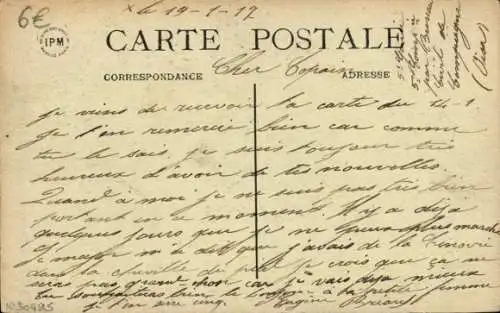 6€
x le 19-1-17
IPM
CARTE POSTALE
CORRESPONDANCE
ADRESSE
Cher Copain
je viens de recevoir la carte du 14-1.
je t'en remercie bien car comme
tu le sais je suis toujours très
heureux d'avoir de tes nouvelles.
Quand à moi je ne suis pas très bien
portant en ce moment. Il y a déjà
quelques jours que je ne peux plus marcher
le major m'a dit que j'avais de la
dans la cheville du pied je crois que ça ne
sera pas grand chose car je vais déjà mieux
Tu souhaiteras bien le bonjour à ta petite femme
je t'en serre cinq. Eugène
Compiègne
(Oise)